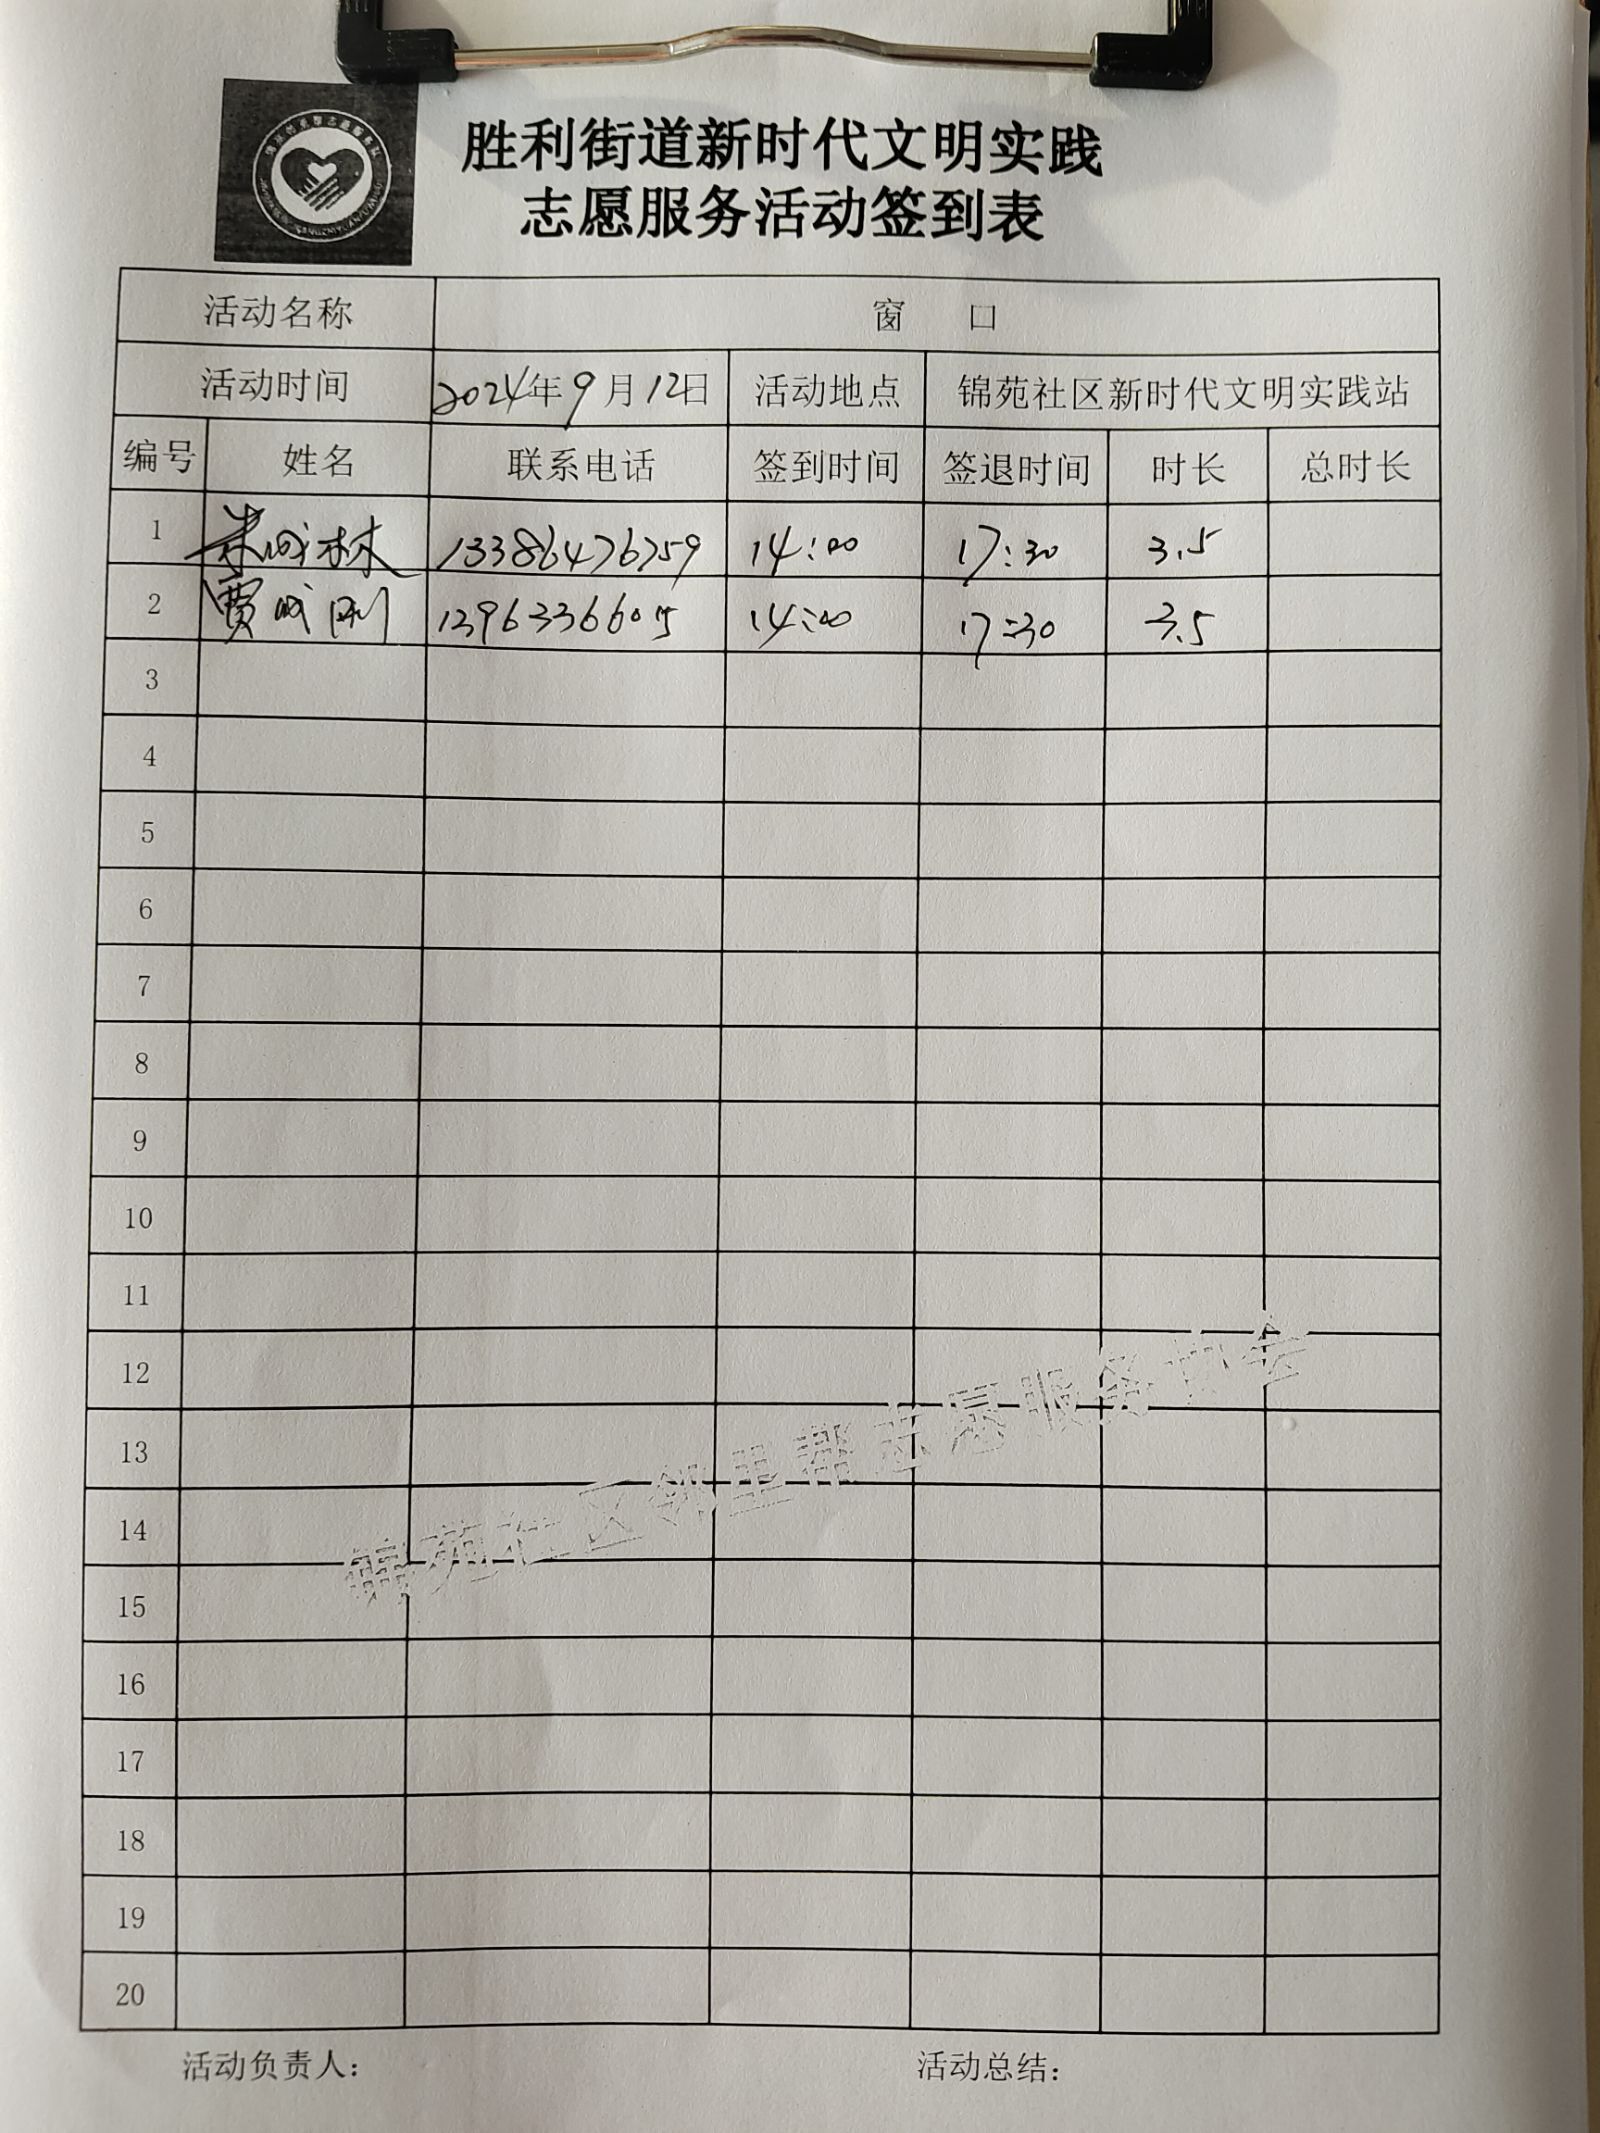 胜利街道新时代文明实践
志愿服务活动签到表
活动名称 窗 口
活动时间 2024年9月12日 活动地点 锦苑社区新时代文明实践站
编号 姓名 联系电话 签到时间 签退时间 时长 总时长
1 朱成林 13386476759 14:00 17:30 3.5
2 贾成刚 13963366015 14:00 17:30 3.5
3
4
5
6
7
8
9
10
11
12
13
14
15
16
17
18
19
20
锦苑社区邻里帮志愿服务协会
活动负责人： 活动总结：